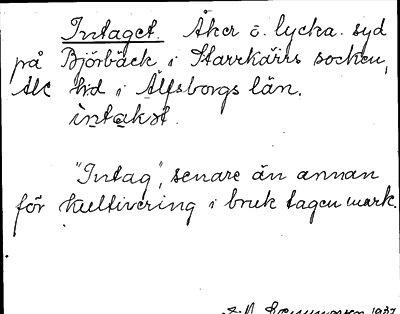 Intaget. Åker o. lycka syd
på Björbäck i Starrkärrs socken,
Ale hd i Älfsborgs län.
intakət.
"Intag", senare än annan
för kultivering i bruk tagen mark.
1937